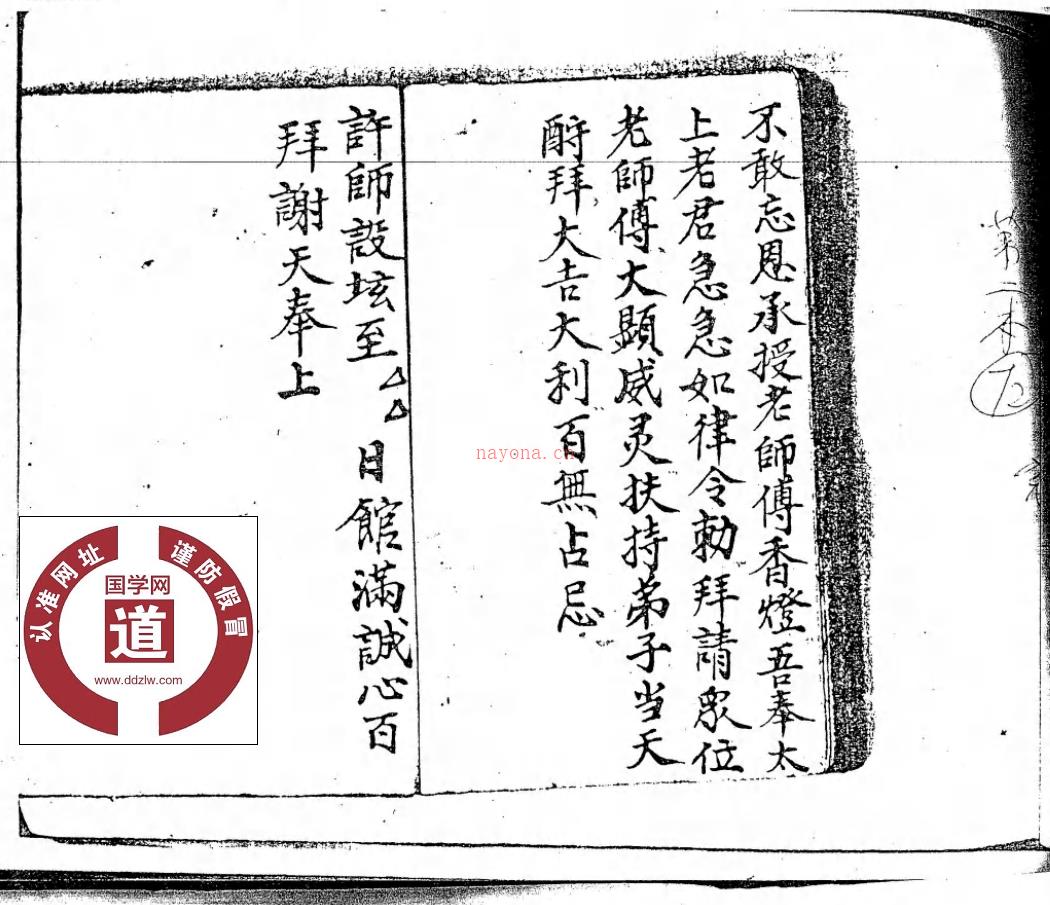 不敢忘恩承授老師傅香燈吾奉太
上老君急急如律令勅拜請眾位
老師傅大顕威灵扶持弟子当天
酧拜大吉大利百無占忌
許師設坛至△△日館滿誠心百
拜謝天奉上
第二本
nayona.cn
认准网址 谨防假冒
国学网
道
www.ddzlw.com